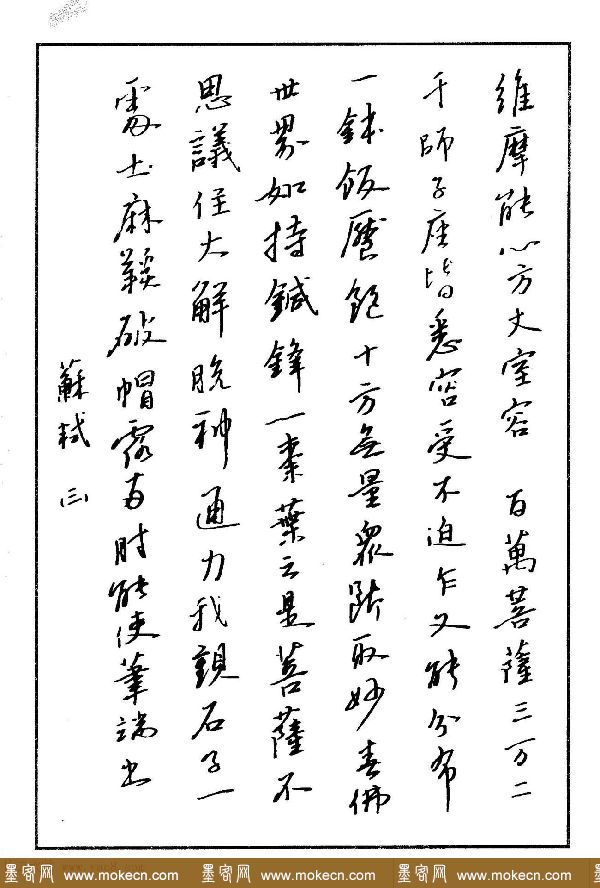 維摩能以方丈室容 百萬菩薩三万二
千師子座皆悉容受不迫乍又能分布
一鉢飯饜飽十方無量眾断取妙喜佛
世界如持鍼鋒一棗葉云是菩薩不
思議住大解脱神通力我觀石子一
處士麻鞵破帽露兩肘能使筆端出
蘇軾 三
墨客网 www.mokecn.com 墨客网 www.mokecn.com 墨客网 www.mokecn.com 墨客网 www.mokecn.com